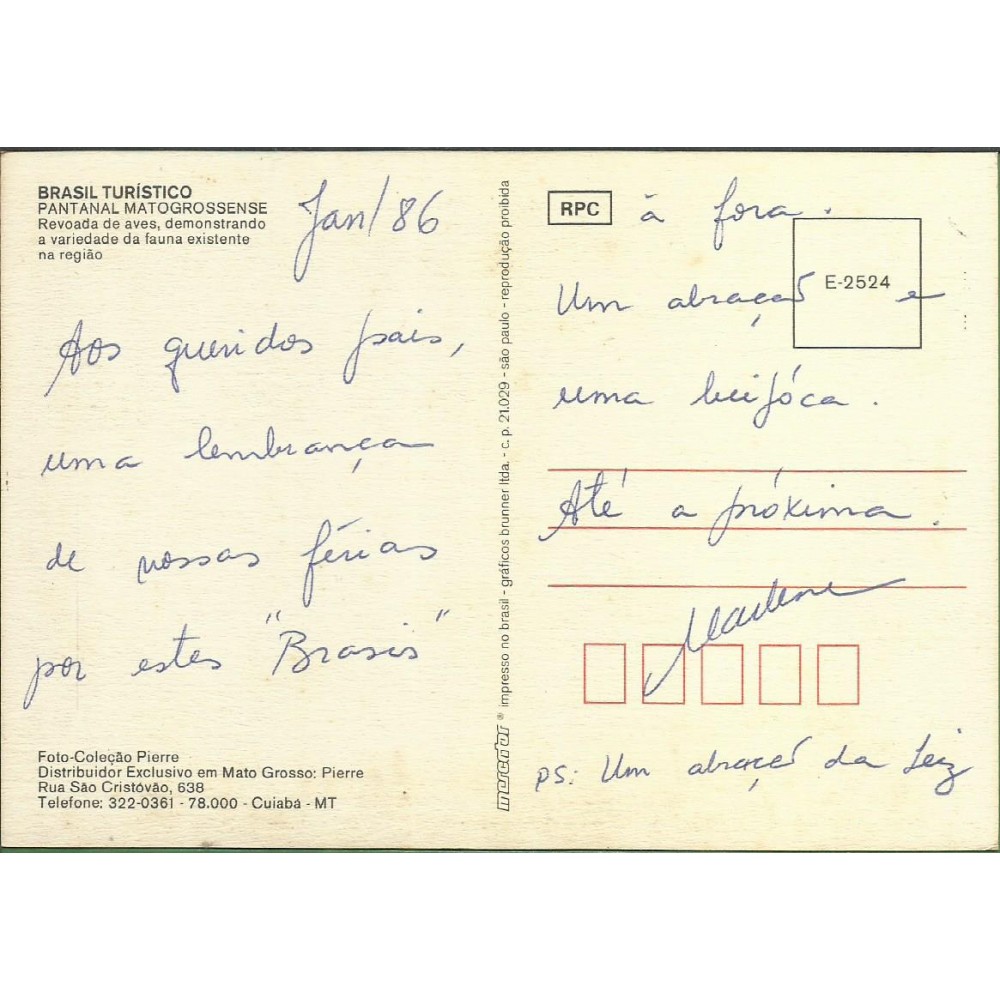 BRASIL TURÍSTICO
PANTANAL MATOGROSSENSE
Revoada de aves, demonstrando
a variedade da fauna existente
na região
Jan/86
Aos queridos pais,
uma lembrança
de nossas férias
por estes "Brasis"
Foto-Coleção Pierre
Distribuidor Exclusivo em Mato Grosso: Pierre
Rua São Cristóvão, 638
Telefone: 322-0361 - 78.000 - Cuiabá - MT
mercator ® impresso no brasil - gráficos brunner ltda. - c. p. 21.029 - são paulo - reprodução proibida
RPC
E-2524
à fora.
Um abraço e
uma beijóca.
Até a próxima.
Marlene
PS: Um abraço da Leiz